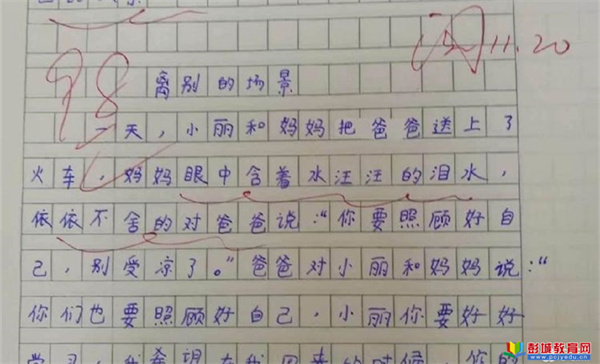 98
11.20
离别的场景
一天，小丽和妈妈把爸爸送上了
火车，妈妈眼中含着水汪汪的泪水，
依依不舍的对爸爸说：“你要照顾好自
己，别受凉了。”爸爸对小丽和妈妈说：“
你们也要照顾好自己，小丽你要好好
学习，我希望在我回来的时候，你的
彭城教育网
www.pcjyedu.cn